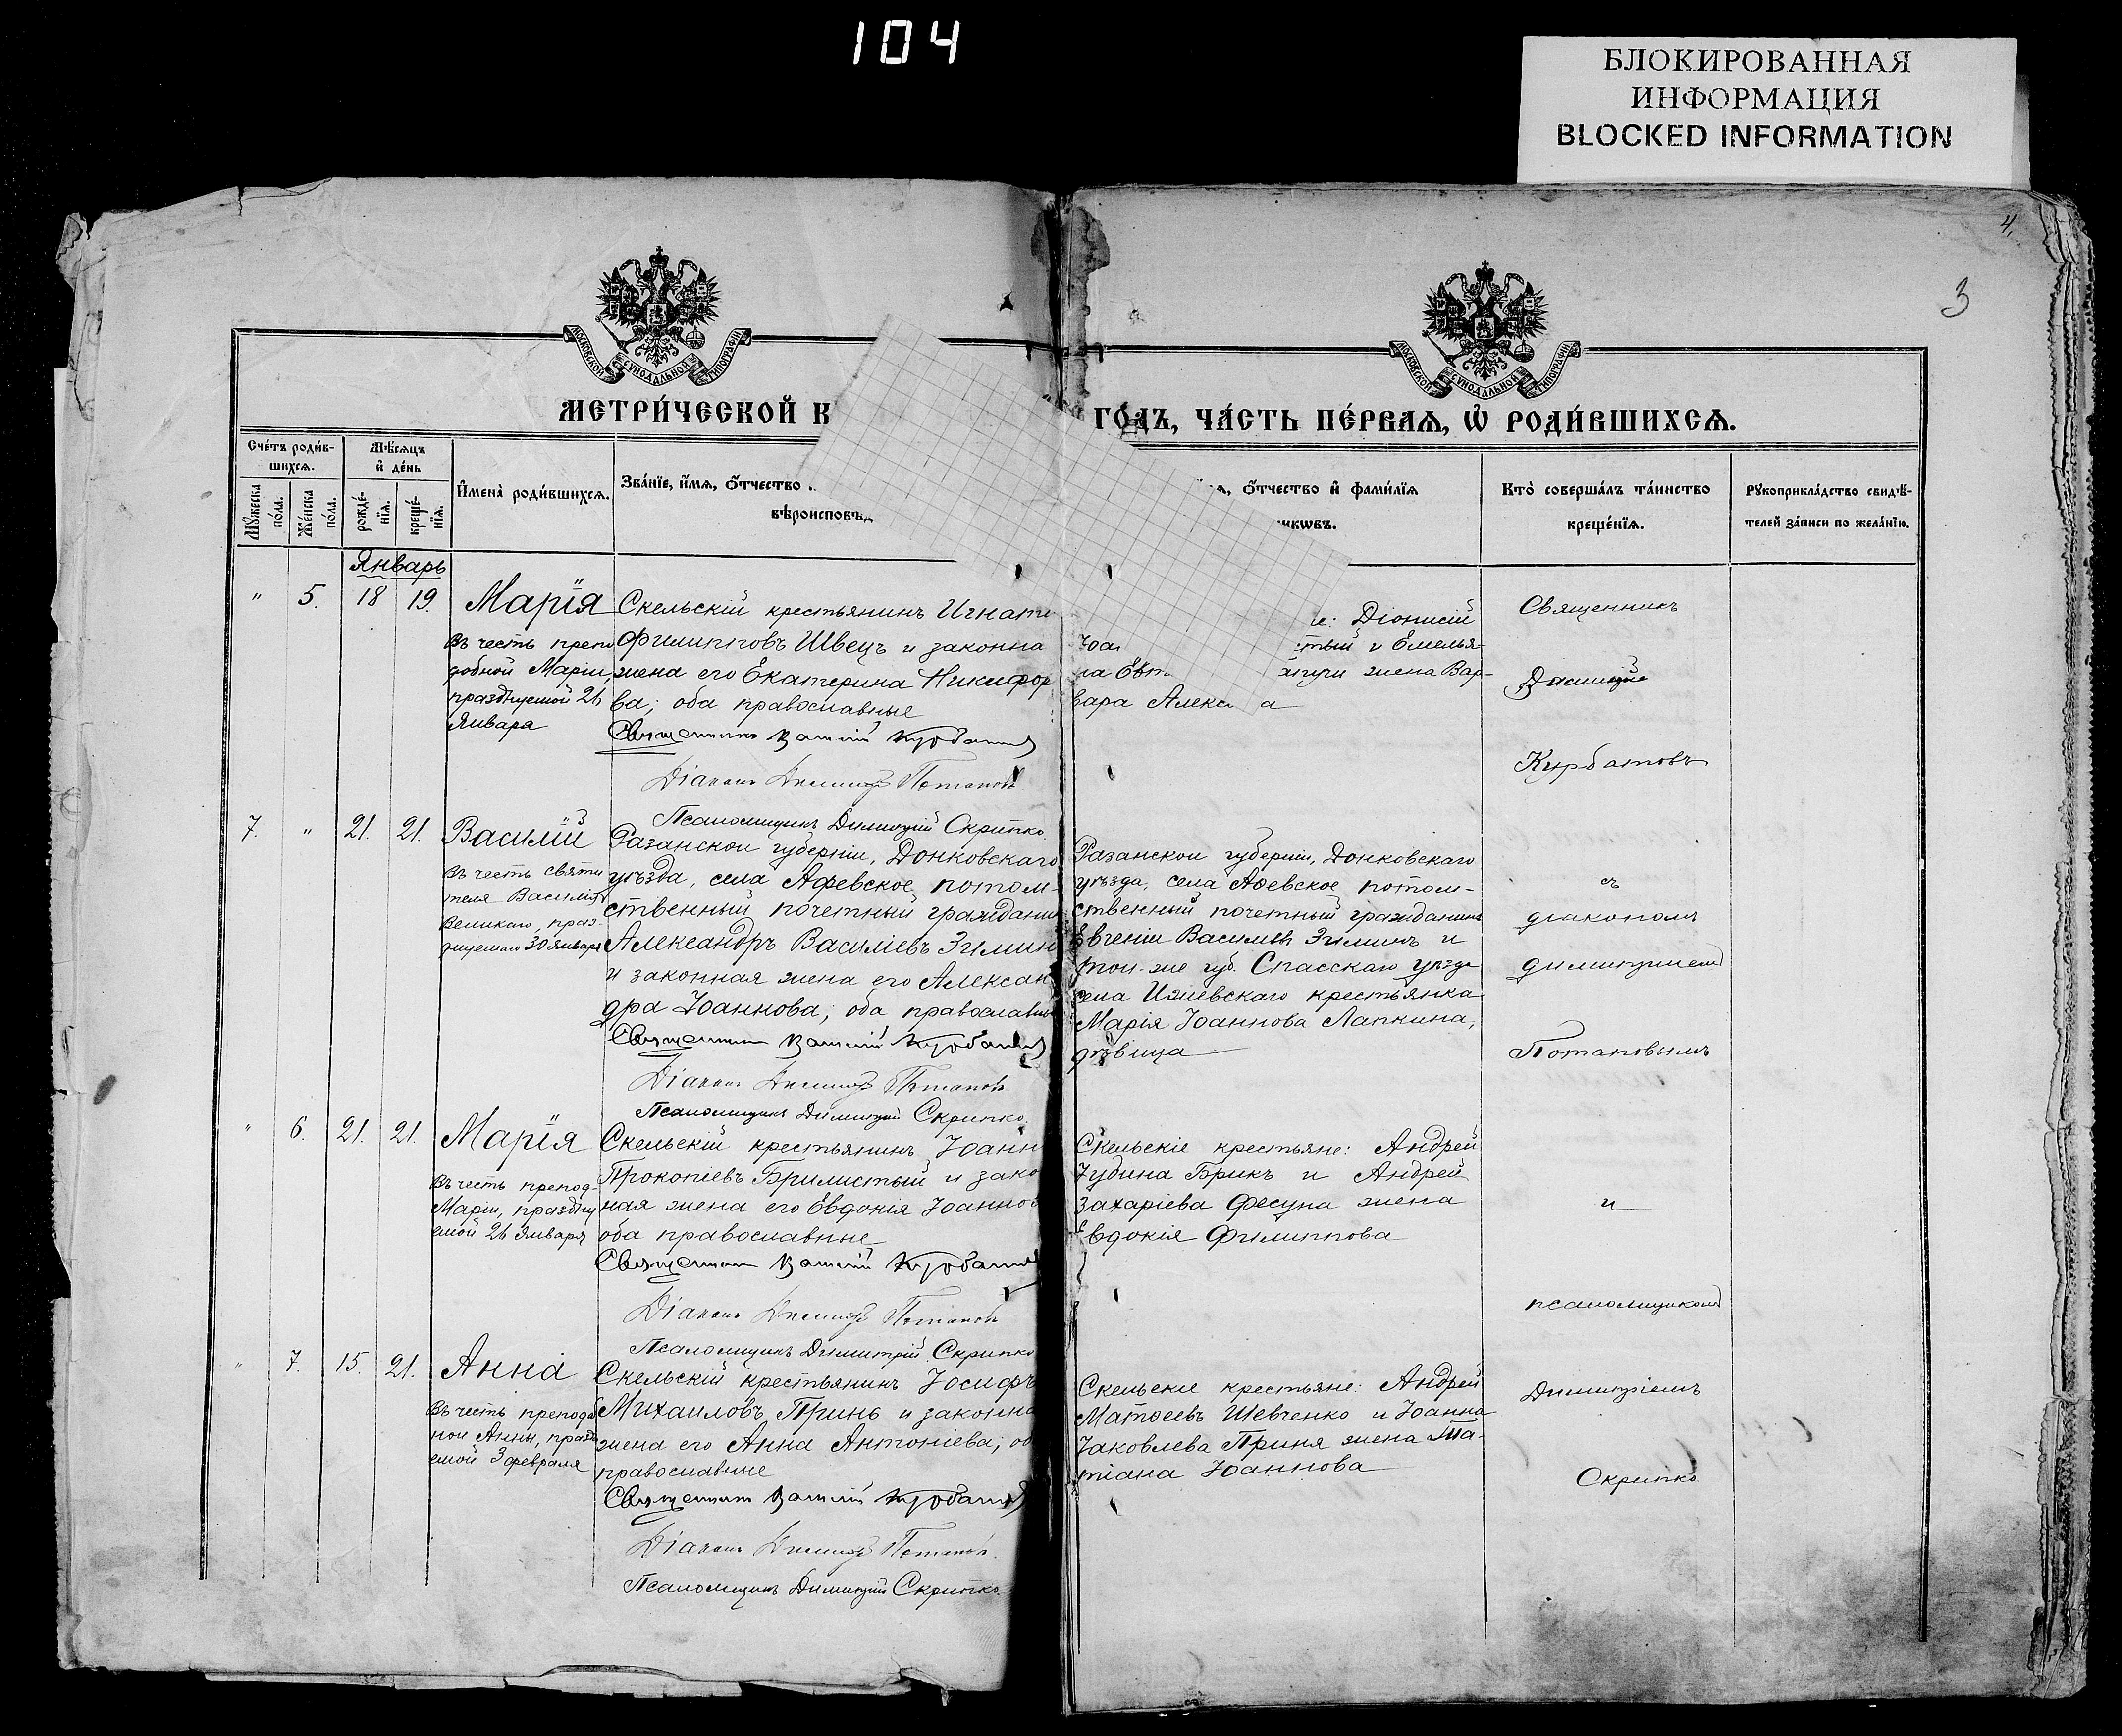 104
БЛОКИРОВАННАЯ
ИНФОРМАЦИЯ
BLOCKED INFORMATION
4.
3
МОСКОВСКОЙ СѴНОДАЛЬНОЙ ТИПОГРАФІИ
МОСКОВСКОЙ СѴНОДАЛЬНОЙ ТИПОГРАФІИ
МЕТРИ́ЧЕСКОЙ К
ГО́ДЪ, ЧА́СТЬ ПЕ́РВАѦ, Ѡ҆ РОДИ́ВШИХСѦ.
Сче́тъ роди́в-
шихсѧ.
Мꙋжеска по́ла.
Же́нска по́ла.
Мѣ́сѧцъ
и҆ де́нь
рожде́-
нїѧ.
креще́-
нїѧ.
И҆мена̀ роди́вшихсѧ.
Зва́нїе, и҆́мѧ, ѻ҆́тчество
вѣроисповѣд
ѧ, ѻ҆́тчество и҆ фами́лїѧ
никѡвъ.
Кто̀ соверша́лъ та́инство
креще́нїѧ.
Рꙋкоприкла́дство свидѣ́-
телей за́писи по жела́нїю.
Январь
" 5. 18 19. Марія
Въ честь препо
добной Маріи,
празднуемой 26
Января
Скельскій крестьянинъ Игнати
Филипповъ Швецъ и законна
жена его Екатерина Никифор
ва; оба православные
Священникъ Василій Курбатовъ
Діаконъ Димитрій Потаповъ
Псаломщикъ Димитрій Скрипко.
е: Діонисій
Іоа
тый и Емелья-
на Евт
жена Вар-
вара Алекс а
Священникъ
Василій
Курбатовъ
7. " 21. 21. Василій
Въ честь святи
теля Василія
Великаго, праз-
днуемаго 30 Января
Рязанской губерніи, Донковскаго
уѣзда, села Аѳевское потом-
ственный почетный гражданин
Александръ Василіевъ Зимин
и законная жена его Алексан
дра Іоаннова; оба православны
Священникъ Василій Курбатовъ
Діаконъ Димитрій Потаповъ
Псаломщикъ Димитрій Скрипко.
Рязанской губерніи, Донковскаго
уѣзда, села Аѳевское потом-
ственный почетный гражданинъ
Евгеній Василіевъ Зиминъ и
той-же губ. Спасскаго уѣзда
села Ижевскаго крестьянка
Марія Іоаннова Лапкина,
дѣвица
съ
діакономъ
Димитріемъ
Потаповымъ
" 6. 21. 21. Марія
Въ честь препод-
Маріи, праздну
емой 26 Января
Скельскій крестьянинъ Іоанн
Прокопіевъ Брилистый и закон
ная жена его Евдокія Іоаннов
оба православные
Священникъ Василій Курбатовъ
Діаконъ Димитрій Потаповъ
Псаломщикъ Димитрій Скрипко
Скельскіе крестьяне: Андрей
Іудина Брикъ и Андрей
Захаріева Фесуна жена
Евдокія Филиппова
и
псаломщикомъ
" 7. 15. 21. Анна
Въ честь преподоб
ной Анны, праздну
емой 3 февраля
Скельскій крестьянинъ Іосифъ
Михаиловъ Принь и законна
жена его Анна Антоніева; об
православные
Священникъ Василій Курбатовъ
Діаконъ Димитрій Потаповъ.
Псаломщикъ Димитрій Скрипко.
Скельскіе крестьяне: Андрей
Матѳеевъ Шевченко и Іоанна
Іаковлева Приня жена Та-
тіана Іоаннова
Димитріемъ
Скрипко.